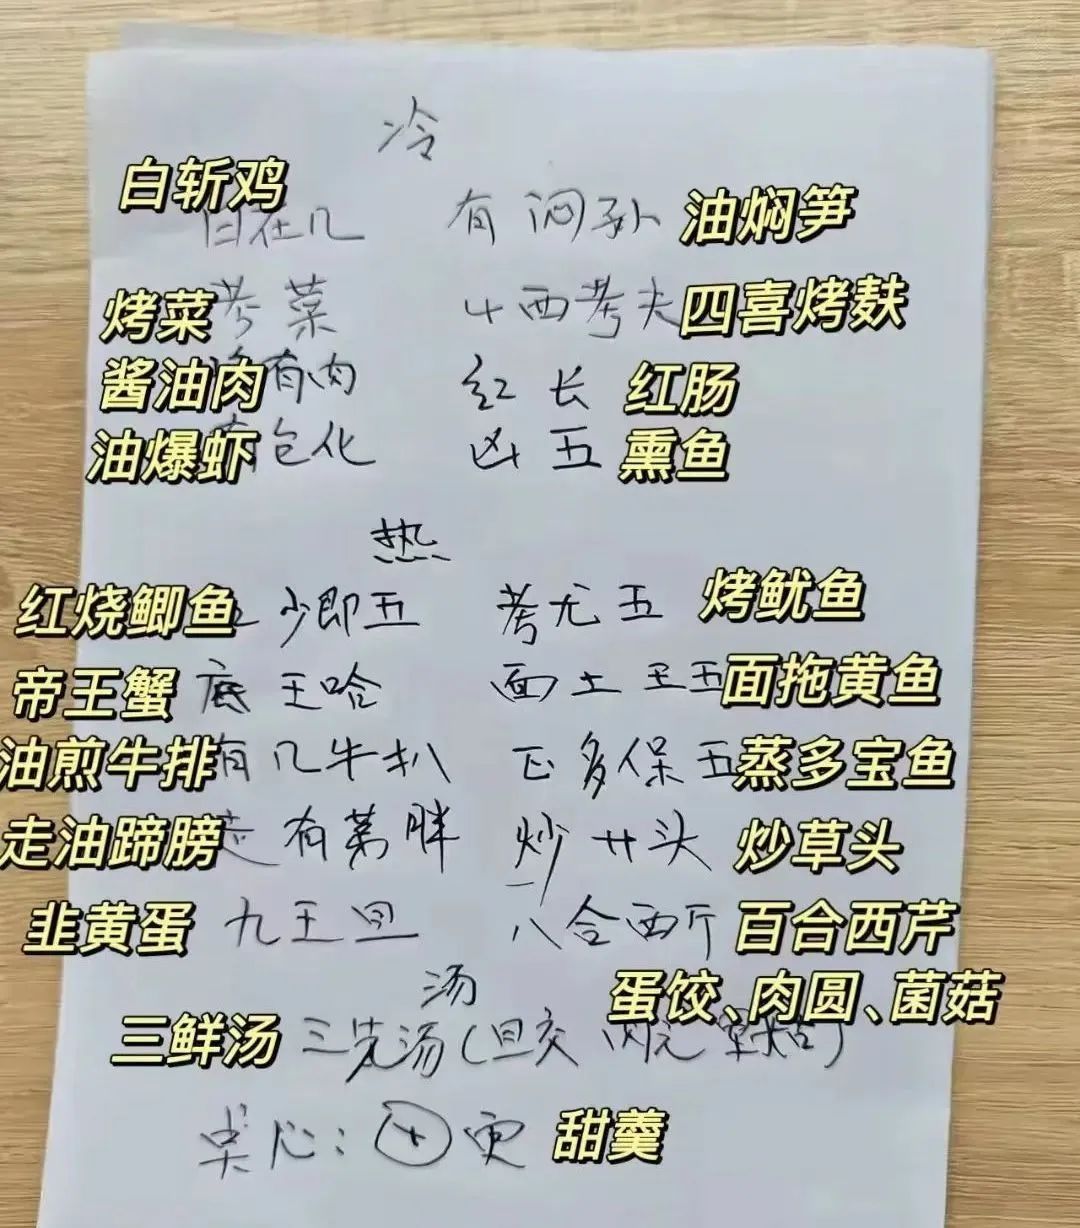 冷
白斩鸡 白在几 有闷孙 油焖笋
烤菜 考菜 四西考夫 四喜烤麸
酱油肉 有肉 红长 红肠
油爆虾 包化 凶五 熏鱼
热
红烧鲫鱼 少即五 考尤五 烤鱿鱼
帝王蟹 底王哈 面土王五 面拖黄鱼
油煎牛排 有几牛扒 正多保五 蒸多宝鱼
走油蹄膀 走有弟胖 炒廿头 炒草头
韭黄蛋 九王旦 八合西斤 百合西芹
汤 蛋饺、肉圆、菌菇
三鲜汤 三先汤(旦交 肉元
点心: 田更 甜羹